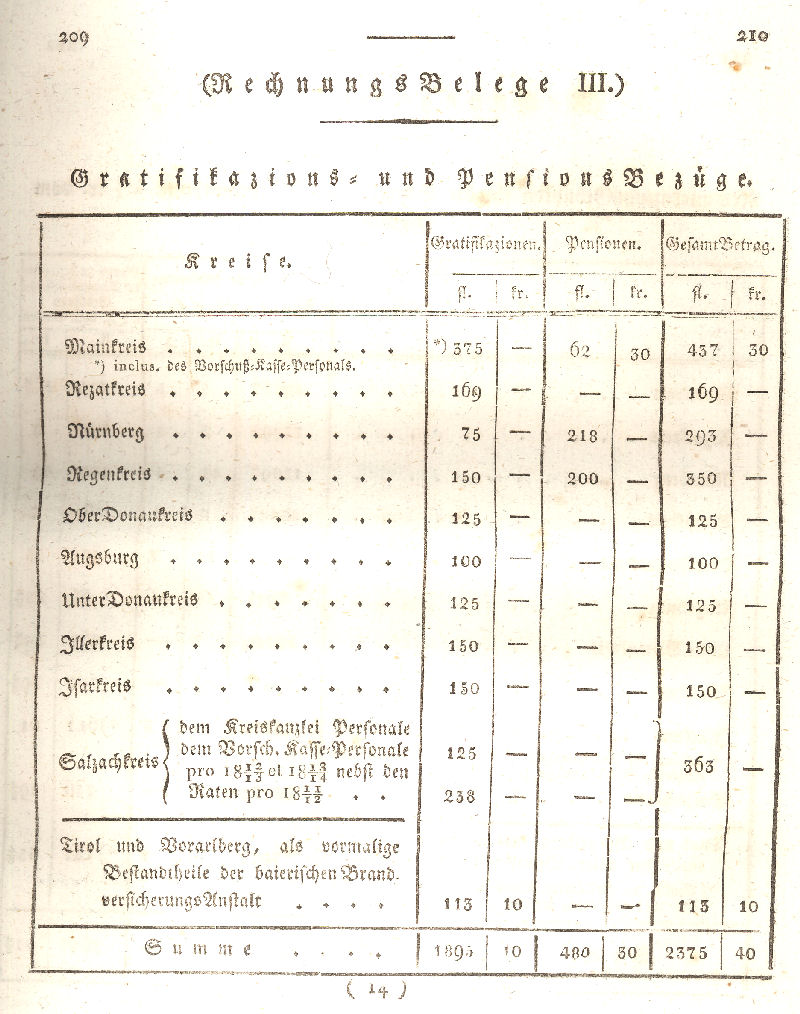 209 210
(RechnungsBelege III.)
Gratifikazions- und PensionsBezüge.
Kreise. Gratifikazionen. Pensionen. GesamtBetrag.
fl. kr. fl. kr. fl. kr.
Mainkreis . . . . . . . . . *) 375 — 62 30 437 30
*) inclus. des Vorschuß-Kasse-Personals.
Rezatkreis . . . . . . . . . 169 — — — 169 —
Nürnberg . . . . . . . . . 75 — 218 — 293 —
Regenkreis . . . . . . . . . 150 — 200 — 350 —
OberDonaukreis . . . . . . . 125 — — — 125 —
Augsburg . . . . . . . . . 100 — — — 100 —
UnterDonaukreis . . . . . . . 125 — — — 125 —
Illerkreis . . . . . . . . . 150 — — — 150 —
Isarkreis . . . . . . . . . 150 — — — 150 —
dem Kreiskanzlei Personale
Salzachkreis dem Vorsch. Kasse-Personale 125 — — —
pro 18 12/13 et 18 13/14 nebst den 363 —
Raten pro 18 11/12 . . 238 — — —
Tirol und Vorarlberg, als vormalige
Bestandtheile der baierischen Brand-
versicherungsAnstalt . . . . 113 10 — — 113 10
Summe . . . . 1895 10 480 30 2375 40
( 14 )